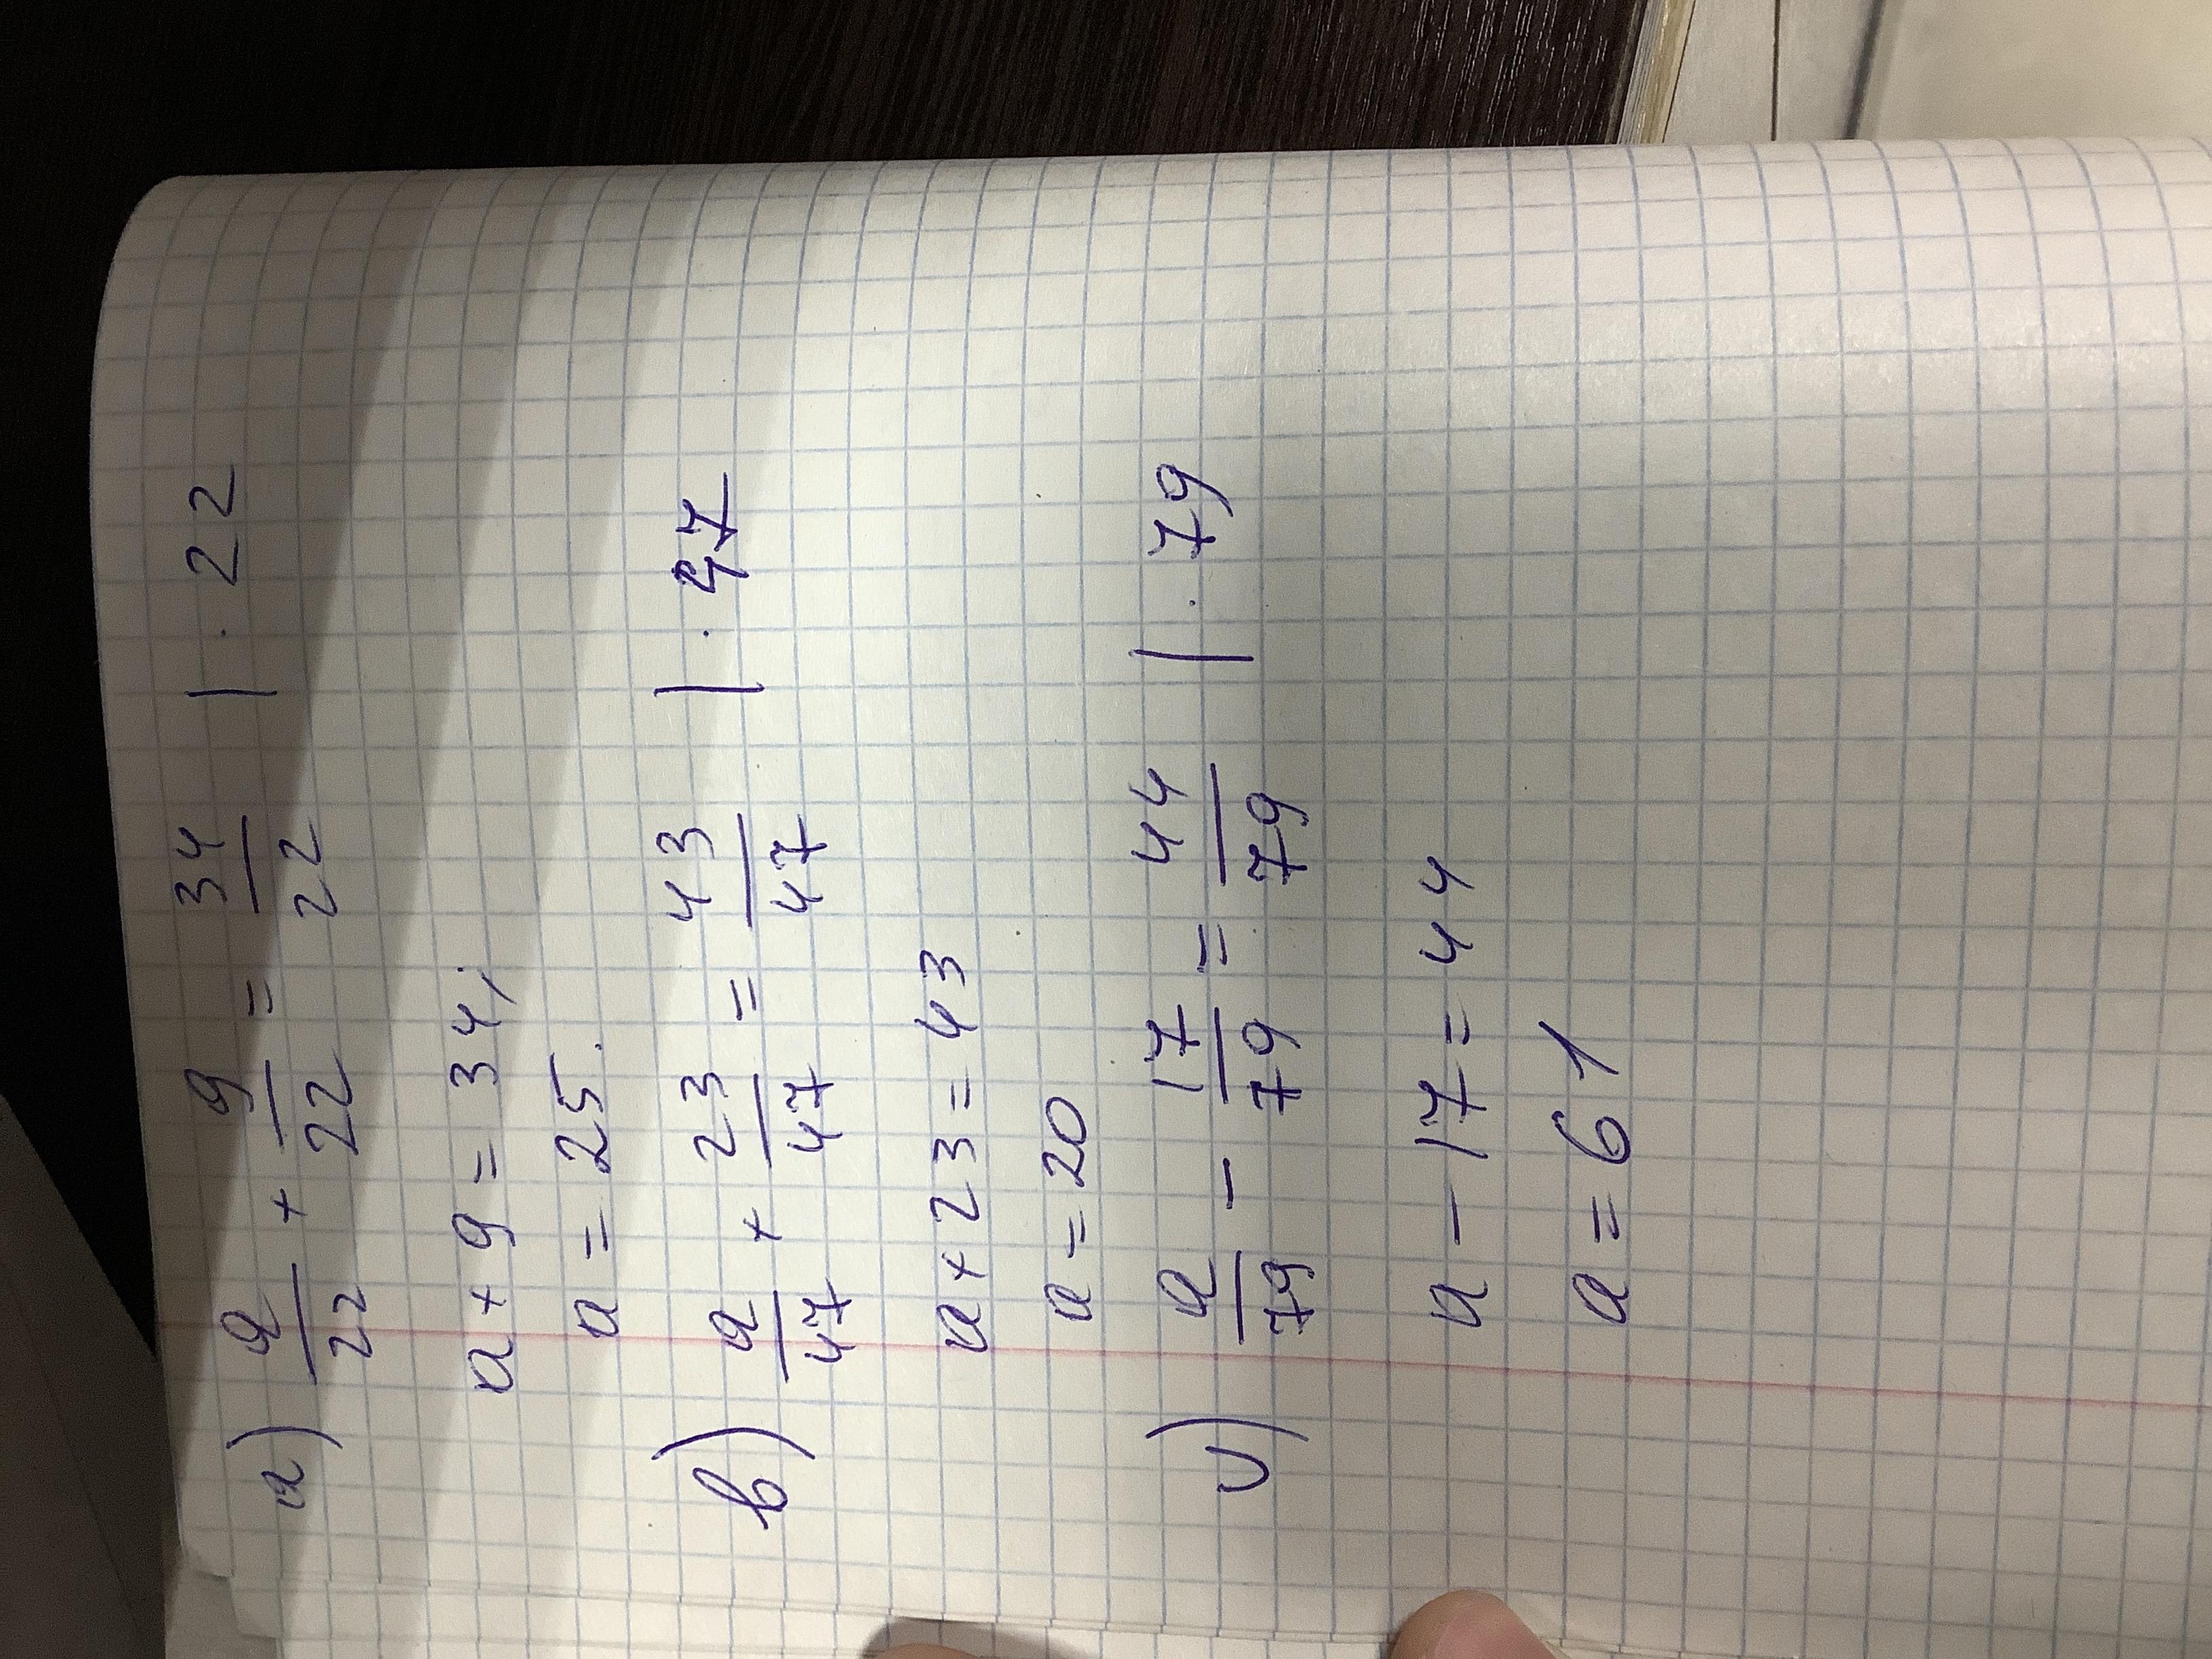 а) a/22 + 9/22 = 34/22 | · 22
a + 9 = 34;
a = 25.
в) a/47 + 23/47 = 43/47 | · 47
a + 23 = 43
a = 20
с) a/79 − 17/79 = 44/79 | · 79
a − 17 = 44
a = 61